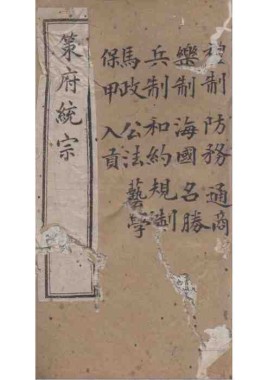 禮制 防務 通商
樂制 海國 名勝
兵制 和約 規制
馬政 公法 藝學
保甲 入貢
策府統宗